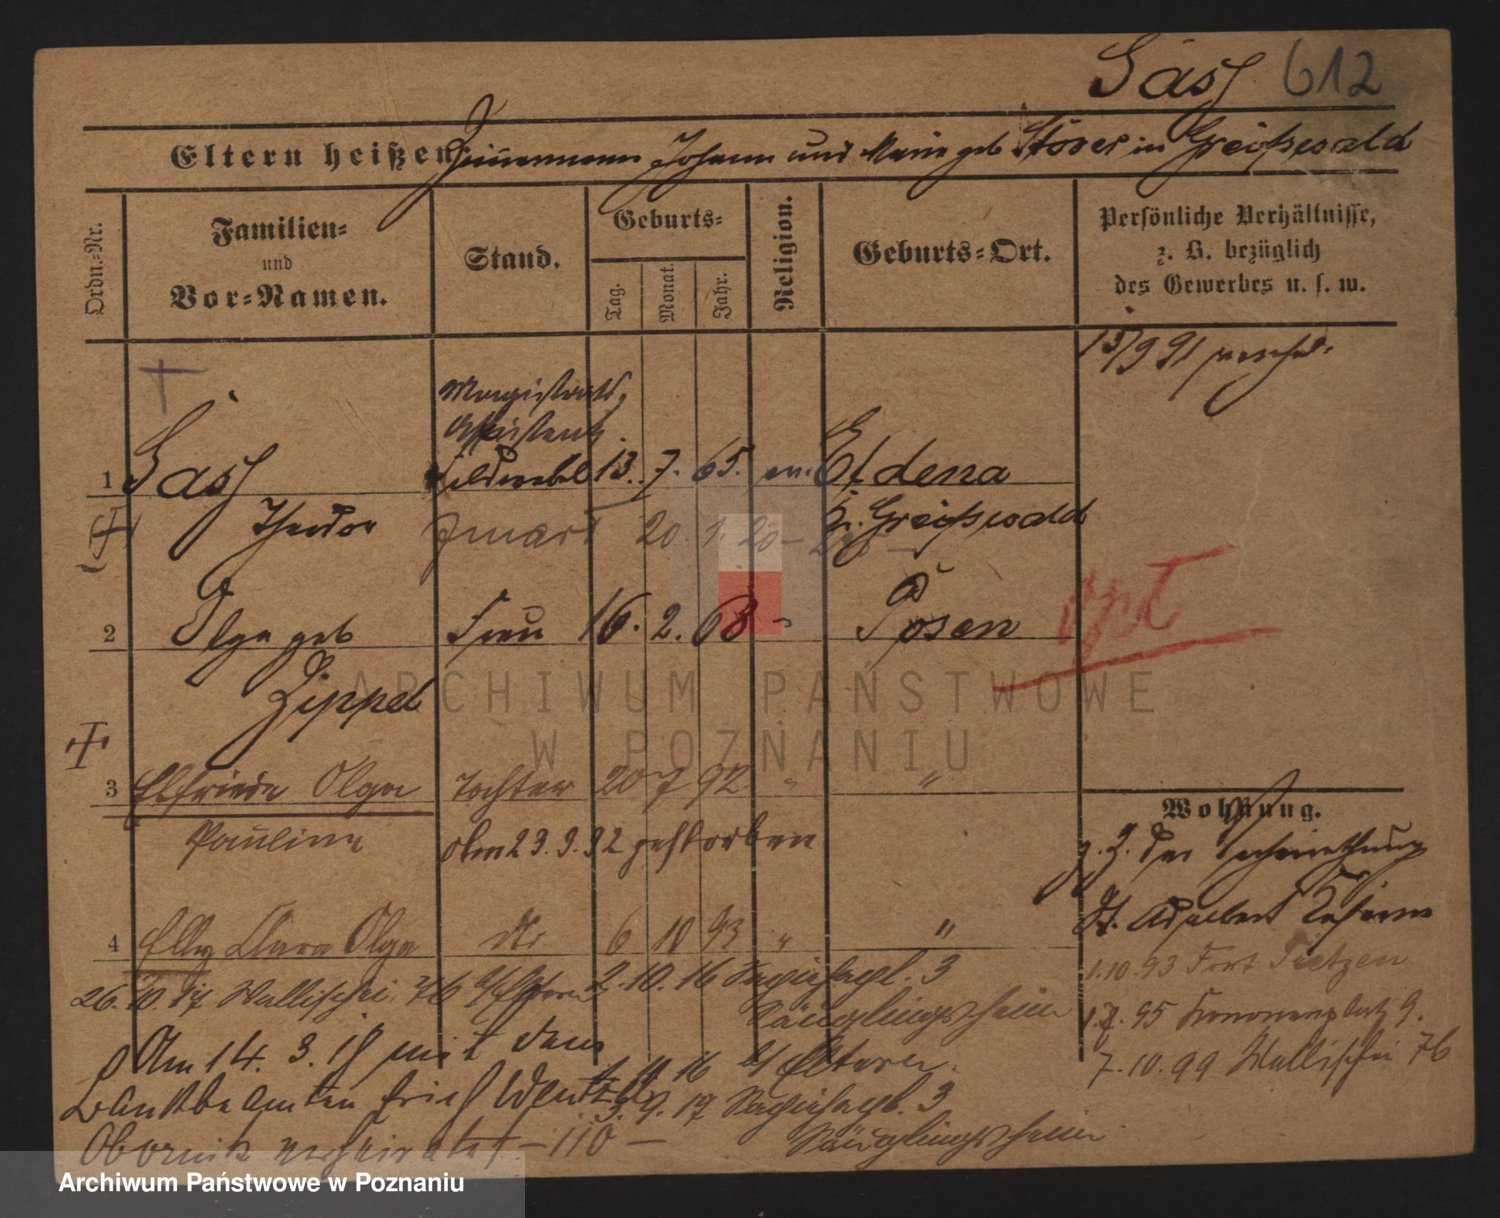 Sasf 612
Eltern heißen: Johann und Marie geb Stöver in Greifswald
Ordn.-Nr.
Familien-
und
Vor-Namen.
Stand.
Geburts-
Tag.
Monat.
Jahr.
Religion.
Geburts-Ort.
Persönliche Verhältnisse,
z. B. bezüglich
des Gewerbes u. s. w.
15/9 91  
Magistrats
Assistent
1 Sasf Feldwebel 13. 7. 65. ev. Eldena
Theodor 20. 1. 20 Kr. Greifswald
2 Olga geb Frau 16. 2. 68 " Posen
Zippel
opt
3 Elfriede Olga Tochter 20 7 92 " "
Pauline am 23. 9. 92 gestorben
Wohnung.
z. Z. der
St. Adalbert Kaserne
4 Elly Clara Olga do 6 10 93 " "
1.10.93 Fort Tietzen
26.10.17 Wallischei 76 Eltern 2.10.16 3
Säuglingsheim
1.7.95 Kanonenplatz 9.
7.10.99 Wallischei 76
Am 14. 3. 18 mit dem
16 Eltern.
Bankbeamten Erich 9. 17 3
Säuglingsheim
Obornik verheiratet - 110 -
ARCHIWUM PAŃSTWOWE
W POZNANIU
Archiwum Państwowe w Poznaniu